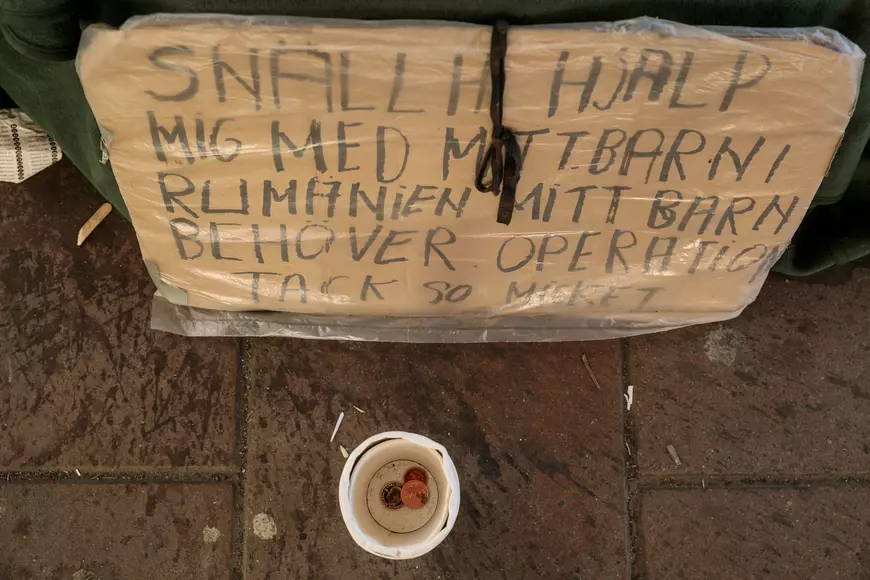 SNÄLLA HJÄLP
MIG MED MITT BARN I
RUMÄNIEN MITT BARN
BEHÖVER OPERATION
TACK SO MICKET